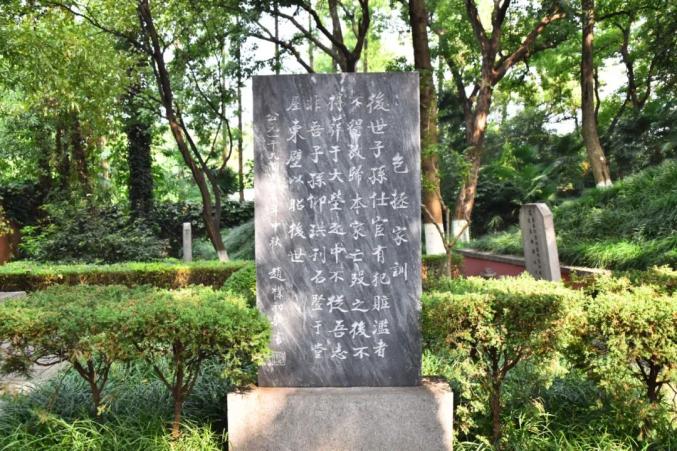 包拯家訓
後世子孫仕官有犯贓濫者
不得放歸本家亡歿之後不
得葬于大塋之中不從吾志
非吾子孫仰珙刊石豎于堂
屋東壁以詔後世
公元一九 年中秋 趙樸初書